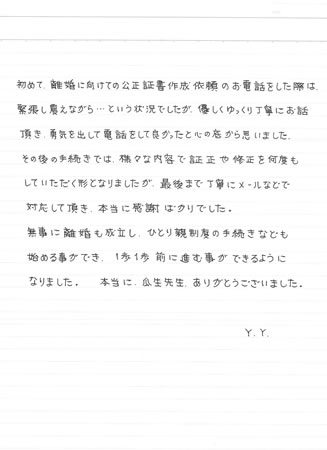 初めて、離婚に向けての公正証書作成依頼のお電話をした際は、
緊張し震えながら…という状況でしたが、優しくゆっくり丁寧にお話
頂き、勇気を出して電話をして良かったと心の底から思いました。
その後の手続きでは、様々な内容で証正や修正を何度も
していただく形となりましたが、最後まで丁寧にメールなどで
対応して頂き、本当に感謝ばかりでした。
無事に離婚も成立し、ひとり親制度の手続きなども
始める事ができ、1歩1歩前に進む事ができるように
なりました。 本当に、瓜生先生、ありがとうございました。
Y.Y.